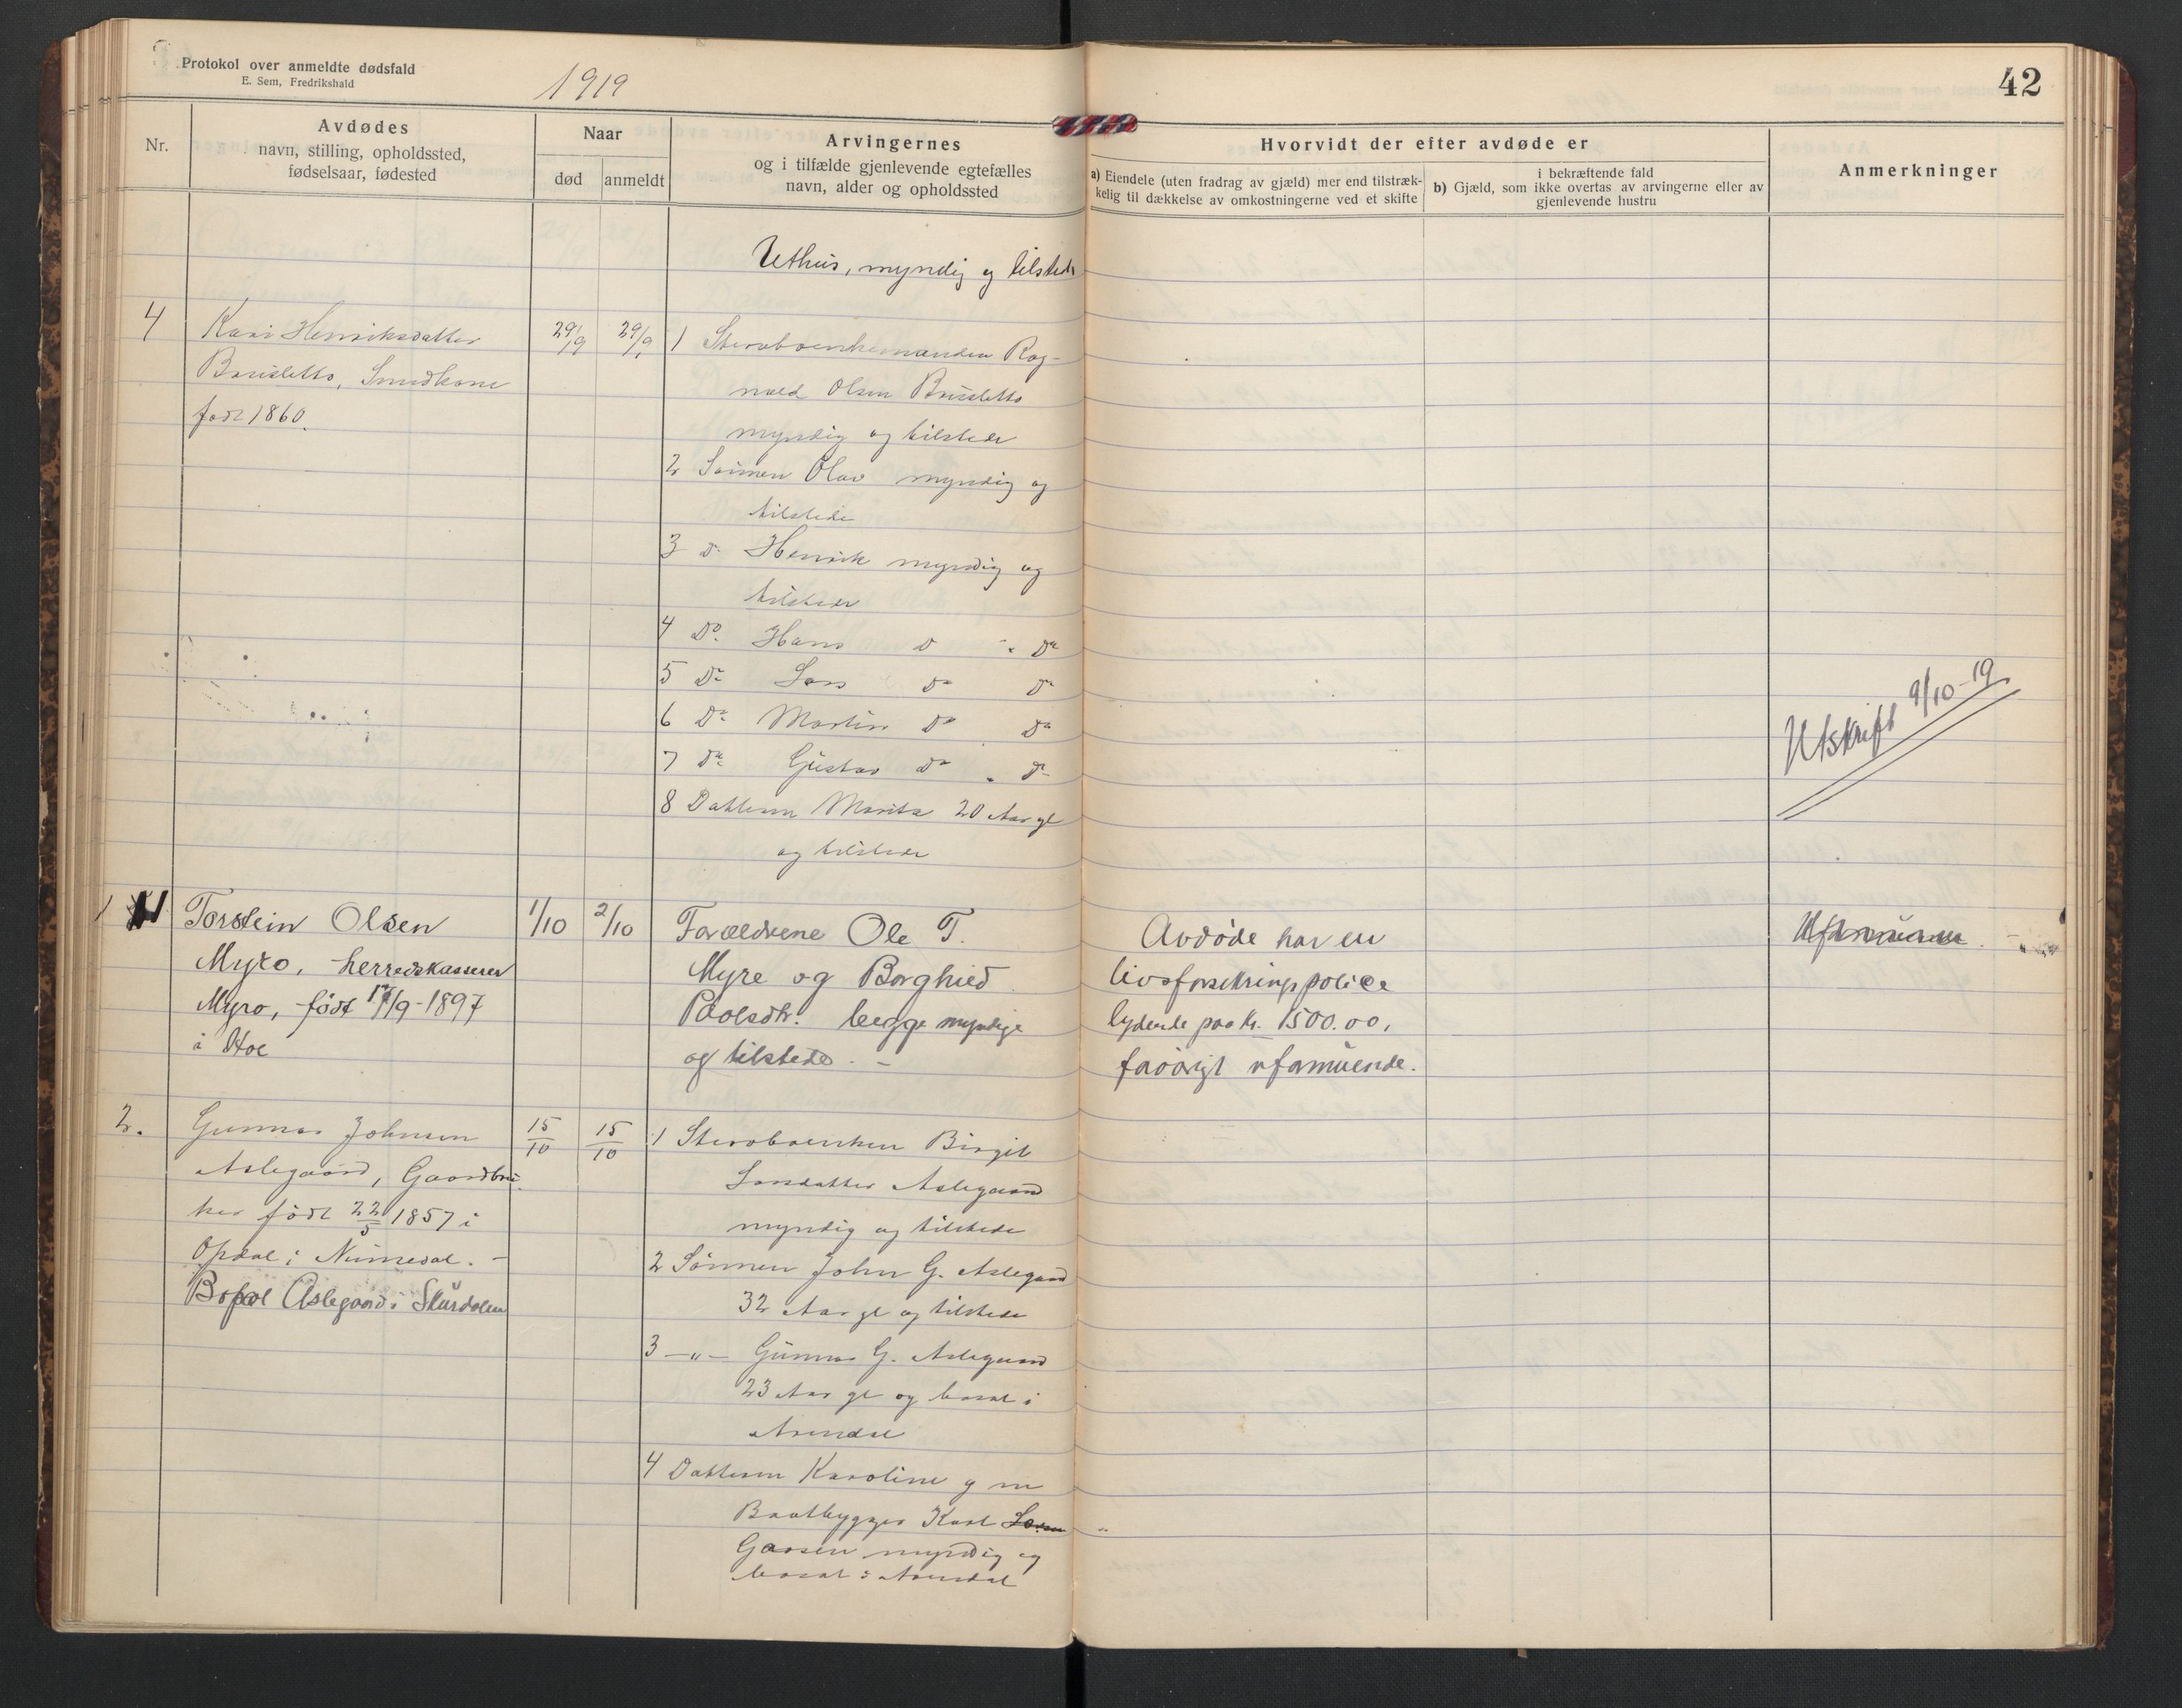 Protokol over anmeldte dødsfald
E. Sem, Fredrikshald
1919
42
Nr.
Avdødes
navn, stilling, opholdssted,
fødselsaar, fødested
Naar
død
anmeldt
Arvingernes
og i tilfælde gjenlevende egtefælles
navn, alder og opholdssted
Hvorvidt der efter avdøde er
a) Eiendele (uten fradrag av gjæld) mer end tilstræk-
kelig til dækkelse av omkostningerne ved et skifte
i bekræftende fald
b) Gjæld, som ikke overtas av arvingerne eller av
gjenlevende hustru
Anmerkninger
Uthus, myndig og tilstede
4
Kari Henriksdatter
Brusletto, Smedkone
født 1860.
29/9
29/9
1 Skraboenkemanden Rag-
nvald Olsen Brusletto
myndig og tilstede
2 Sønnen Olav myndig og
tilstede
3 Do Henrik myndig og
tilstede
4 Do Hans Do Do
5 Do Lars Do Do
6 Do Martin Do Do
7 Do Gustav Do Do
8 Datteren Marita 20 Aar gl
og tilstede
Utskrift 9/10-19
1
Torstein Olsen
Myro, herredskasserer
Myro, født 17/9-1897
i Hol
1/10
2/10
Forældrene Ole T.
Myre og Borghild
Paalsdtr. begge myndige
og tilstede. –
Avdøde har en
livsforsikringspolice
lydende paa kr. 1500.00,
forøvrigt uformuende.
Uformuende
2.
Gunnar Johnsen
Aslegaard, Gaardbru-
ker født 22/5 1857 i
Opdal i Numedal. –
Bopæl Aslegaard i Skurdalen
15/10
15/10
1 Skraboenken Birgit
Larsdatter Aslegaard
myndig og tilstede
2 Sønnen John G. Aslegaard
32 Aar gl og tilstede
3 —"— Gunnar G. Aslegaard
23 Aar gl og bosat i
Arendal
4 Datteren Karoline g m
Baatbygger Karl
Garsen myndig og
bosat i Arendal